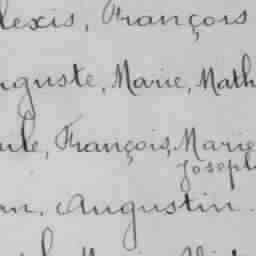 lexis, François
uguste, Marie, Math
ule, François, Marie
Joseph
m. Augustin.